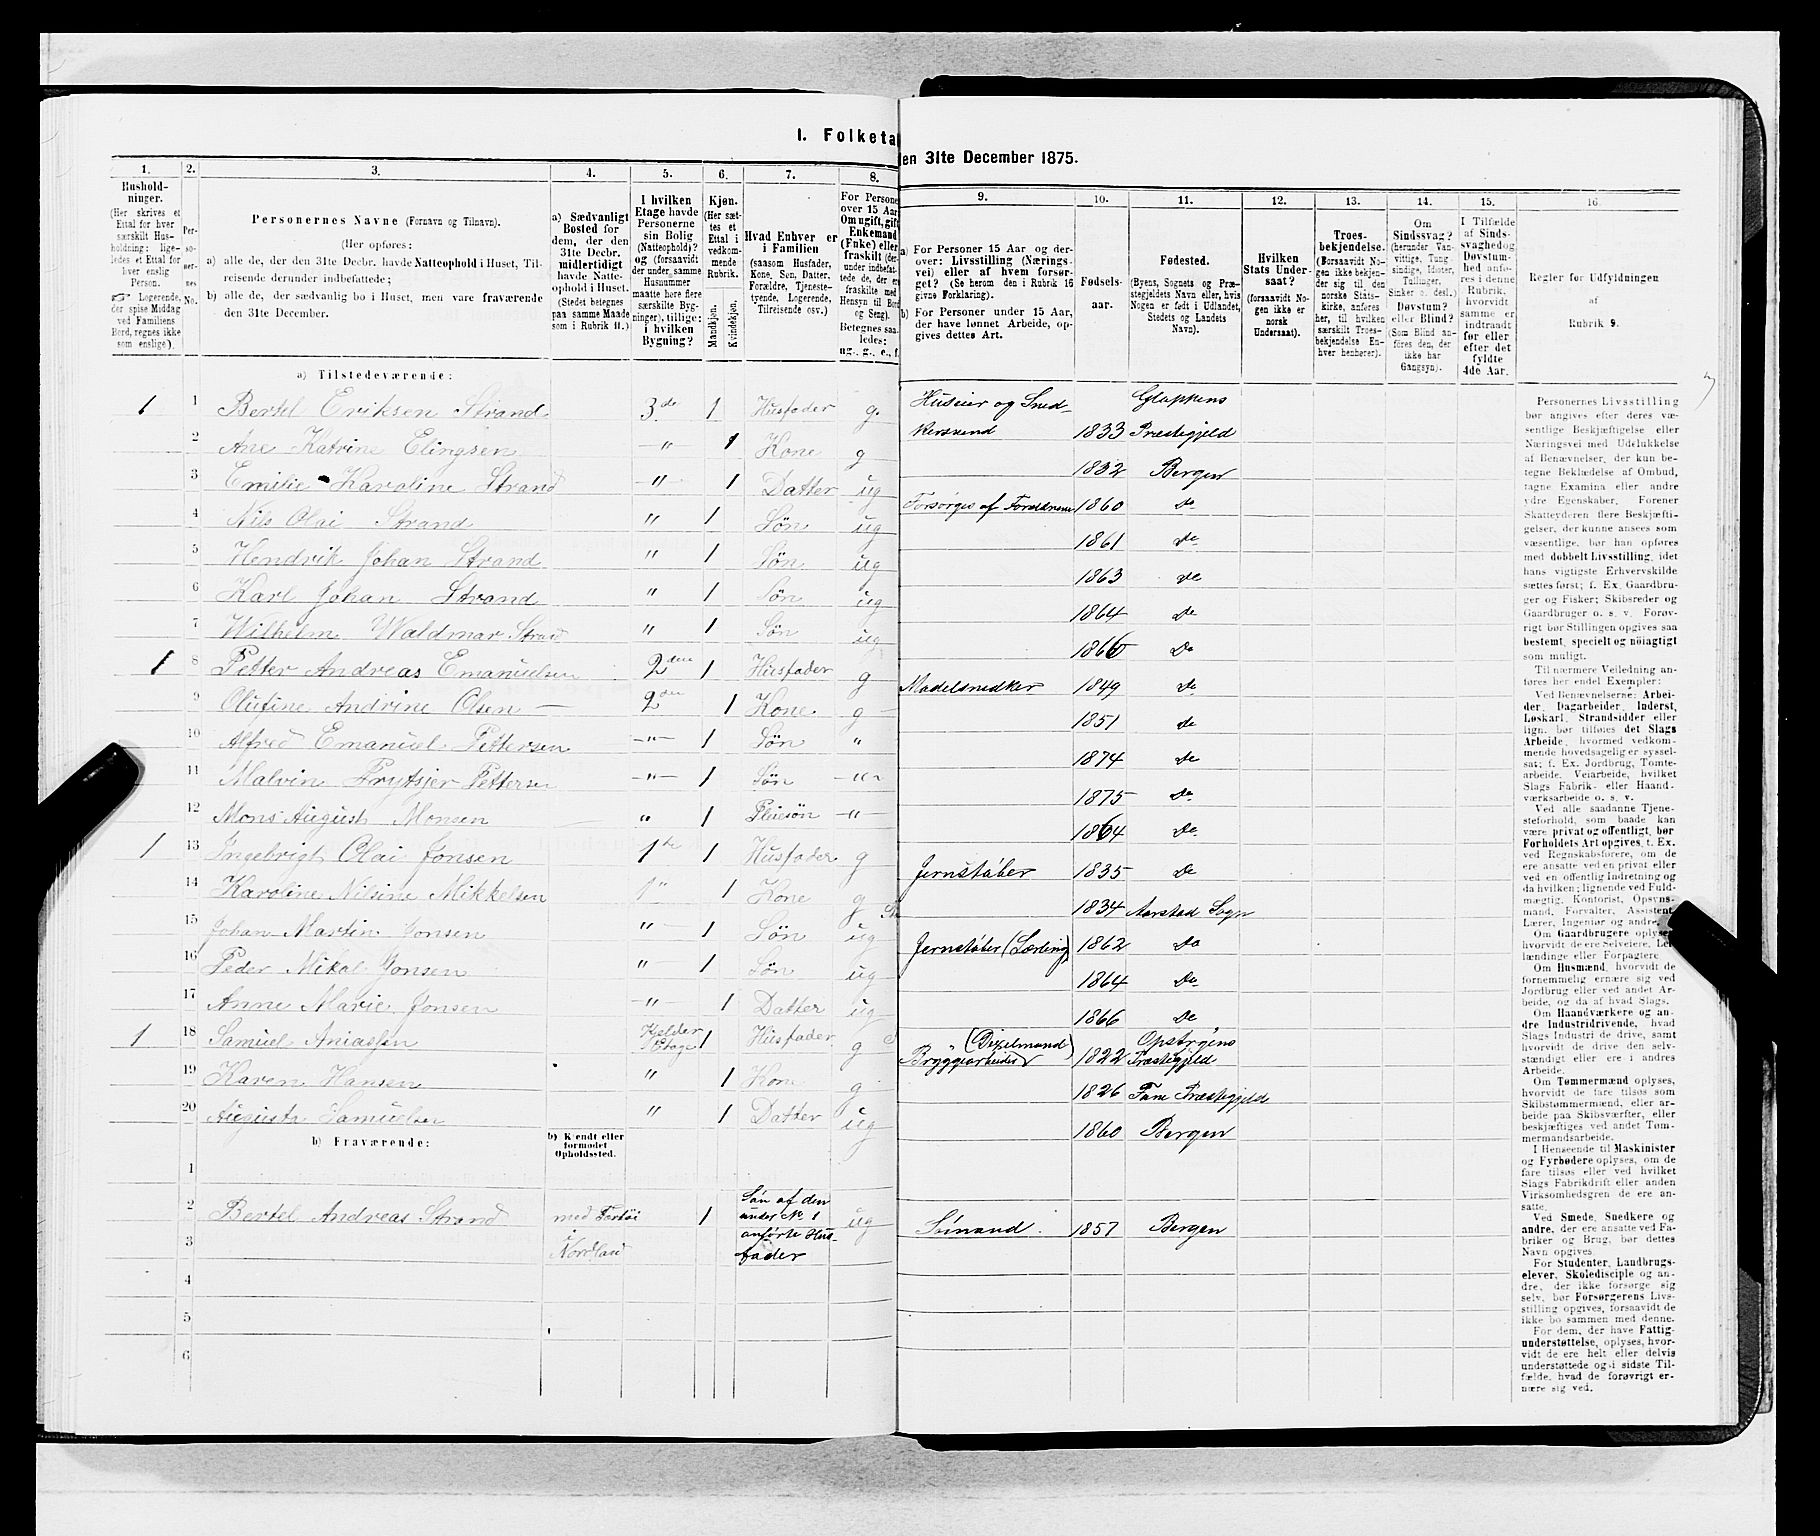 I. Folketa
en 31te December 1875.
1.
2.
3.
4.
5.
6.
7.
8.
9.
10.
11.
12.
13.
14.
15.
16.
Hushold-
ninger.
(Her skrives et
Ettal for hver
særskilt Hus-
holdning; lige-
ledes et Ettal for
hver enslig
Person.
Logerende,
der spise Middag
ved Familiens
Bord, regnes ikke
som enslige).
Per-
so-
ner-
nes
No.
Personernes Navne (Fornavn og Tilnavn).
(Her opføres:
a) alle de, der den 31te Decbr. havde Natteophold i Huset, Til-
reisende derunder indbefattede;
b) alle de, der sædvanlig bo i Huset, men vare fraværende
den 31te December.
a) Sædvanligt
Bosted for
dem, der den
31te Decbr.
midlertidigt
havde Natte-
ophold i Huset.
(Stedet betegnes
paa samme Maade
som i Rubrik 11.)
I hvilken
Etage havde
Personerne
sin Bolig
(Natteophold)?
og (forsaavidt
der under samme
Husnummer
maatte høre flere
særskilte Byg-
ninger), tillige:
i hvilken
Bygning?
Kjøn.
(Her sæt-
tes et
Ettal i
vedkom-
mende
Rubrik.
Mandkjøn.
Kvindekjøn.
Hvad Enhver er
i Familien
(saasom Husfader,
Kone, Søn, Datter,
Forældre, Tjeneste-
tyende, Logerende,
Tilreisende osv.)
For Persone
over 15 Aar
Om ugift, gift
Enkemand
(Enke) eller
fraskilt (der-
under indbefat-
tede de, der er
fraskilte med
Hensyn til Bord
og Seng).
Betegnes saa-
ledes:
ug., g., e., f.
a) For Personer 15 Aar og der-
over: Livsstilling (Nærings-
vei) eller af hvem forsør-
get? (Se herom den i Rubrik 16
givne Forklaring).
b) For Personer under 15 Aar,
der have lønnet Arbeide, op-
gives dettes Art.
Fødsels-
aar.
Fødested.
(Byens, Sognets og Præ-
stegjeldets Navn eller, hvis
Nogen er født i Udlandet,
Stedets og Landets
Navn).
Hvilken
Stats Under-
saat?
(forsaavidt No-
gen ikke er
norsk
Undersaat).
Troes-
bekjendelse.
(Forsaavidt No-
gen ikke bekjen-
der sig til den
norske Stats-
kirke, anføres
her, til hvilken
særskilt Troes-
bekjendelse En-
hver henhører).
Om
Sindssvag?
(herunder Van-
vittige, Tung-
sindige, Idioter,
Tullinger,
Sinker o. desl.)
Døvstum?
eller Blind?
(Som Blind an-
føres den, der
ikke har
Gangsyn).
I Tilfælde
af Sinds-
svaghed og
Døvstum-
hed anfø-
res i denne
Rubrik,
hvorvidt
samme er
indtraadt
før eller
efter det
fyldte
4de Aar.
Regler for Udfyldningen
af
Rubrik 9.
a) Tilstedeværende:
1 1 Bertel Eriksen Strand 3de 1 Husfader g. Huseier og Sned-
kersvend 1833 Gloppens
Præstegjeld
2 Ane Katrine Elingsen " 1 Kone g 1832 Bergen
3 Emilie Karoline Strand " 1 Datter ug Forsørges af Forældrene 1860 Do
4 Nils Olai Strand " 1 Søn ug 1861 Do
5 Hendrik Johan Strand " 1 Søn ug 1863 Do
6 Karl Johan Strand " 1 Søn ug 1864 Do
7 Wilhelm Waldmar Strand " 1 Søn ug 1866 Do
1 8 Petter Andreas Emanuelsen 2den 1 Husfader g Modelsnedker 1849 Do
9 Olufine Andrine Olsen 2den 1 Kone g 1851 Do
10 Alfred Emanuel Pettersen " 1 Søn " 1874 Do
11 Malvin Frytsjer Pettersen " 1 Søn " 1875 Do
12 Mons August Monsen " 1 Pleiesøn " 1864 Do
1 13 Ingebrigt Olai Jonsen 1ste 1 Husfader g Jernstøber 1835 Do
14 Karoline Nilsine Mikkelsen 1" 1 Kone g 1834 Aarstad Sogn
15 Johan Martin Jonsen " 1 Søn ug Jernstøber (Lærling) 1862 Do
16 Peder Mikal Jonsen " 1 Søn ug 1864 Do
17 Anne Marie Jonsen " 1 Datter ug 1866 Do
1 18 Samuel Aniassen Kjelder
Etage 1 Husfader g Bryggearbeider 1822 Præstegjeld
19 Karen Hansen " 1 Kone g 1826 Fane Præstegjeld
20 Augusta Samuelsen " 1 Datter ug 1860 Bergen
b) Fraværende:
b) Kjendt eller
formodet
Opholdssted.
1
2 Bertel Andreas Strand med Fartøi
Nordland 1 Søn af den
under No. 1
anførte Hus-
fader ug Sømand. 1857 Bergen
3
4
5
6
Personernes Livsstilling
bør angives efter deres væ-
sentlige Beskjæftigelse eller
Næringsvei med Udelukkelse
af Benævnelser, der kun be-
tegne Beklædelse af Ombud,
tagne Examina eller andre
ydre Egenskaber. Forener
Skatteyderen flere Beskjæfti-
gelser, der kunne ansees som
væsentlige, bør han opføres
med dobbelt Livsstilling, idet
hans vigtigste Erhvervskilde
sættes først; f. Ex. Gaardbru-
ger og Fisker; Skibsreder og
Gaardbruger o. s. v. Forøv-
rigt bør Stillingen opgives saa
bestemt, specielt og nøiagtigt
som muligt.
Til nærmere Veiledning an-
føres her endel Exempler:
Ved Benævnelserne: Arbei-
der, Dagarbeider, Inderst,
Løskarl, Strandsidder eller
lign. bør tilføies det Slags
Arbeide, hvormed vedkom-
mende hovedsagelig er syssel-
sat; f. Ex. Jordbrug, Tomte-
arbeide, Veiarbeide, hvilket
Slags Fabrik- eller Haand-
værksarbeide o. s. v.
Ved alle saadanne Tjene-
steforhold, som baade kan
være privat og offentligt, bør
Forholdets Art opgives, f. Ex.
ved Regnskabsførere, om de
ere ansatte ved en privat eller
ved en offentlig Indretning og
da hvilken; lignende ved Fuld-
mægtig, Kontorist, Opsyns-
mand, Forvalter, Assistent,
Lærer, Ingeniør og andre.
Om Gaardbrugere oplyses,
hvorvidt de ere Selveiere, Lei-
lændinge eller Forpagtere
Om Husmænd, hvorvidt de
fornemmelig ernære sig ved
Jordbrug eller ved andet Ar-
beide, og da af hvad Slags.
Om Haandværkere og an-
dre Industridrivende, hvad
Slags Industri de drive, samt
hvorvidt de drive den selv-
stændigt eller ere i andres
Arbeide.
Om Tømmermænd oplyses,
hvorvidt de fare tilsøs som
Skibstømmermænd, eller ar-
beide paa Skibsværfter, eller
beskjæftiges ved andet Tøm-
mermandsarbeide.
I Henseende til Maskinister
og Fyrbødere oplyses, om de
fare tilsøs eller ved hvilket
Slags Fabrikdrift eller anden
Virksomhedsgren de ere an-
satte.
Ved Smede, Snedkere og
andre, der ere ansatte ved Fa-
briker og Brug, bør dettes
Navn opgives.
For Studenter, Landbrugs-
elever, Skoledisciple og an-
dre, der ikke forsørge sig
selv, bør Forsørgerens Livs-
stilling opgives, forsaavidt de
ikke bo sammen med denne.
For dem, der have Fattig-
understøttelse, oplyses, hvor-
vidt de ere helt eller delvis
understøttede og i sidste Til-
fælde, hvad de forøvrigt er-
nære sig ved.